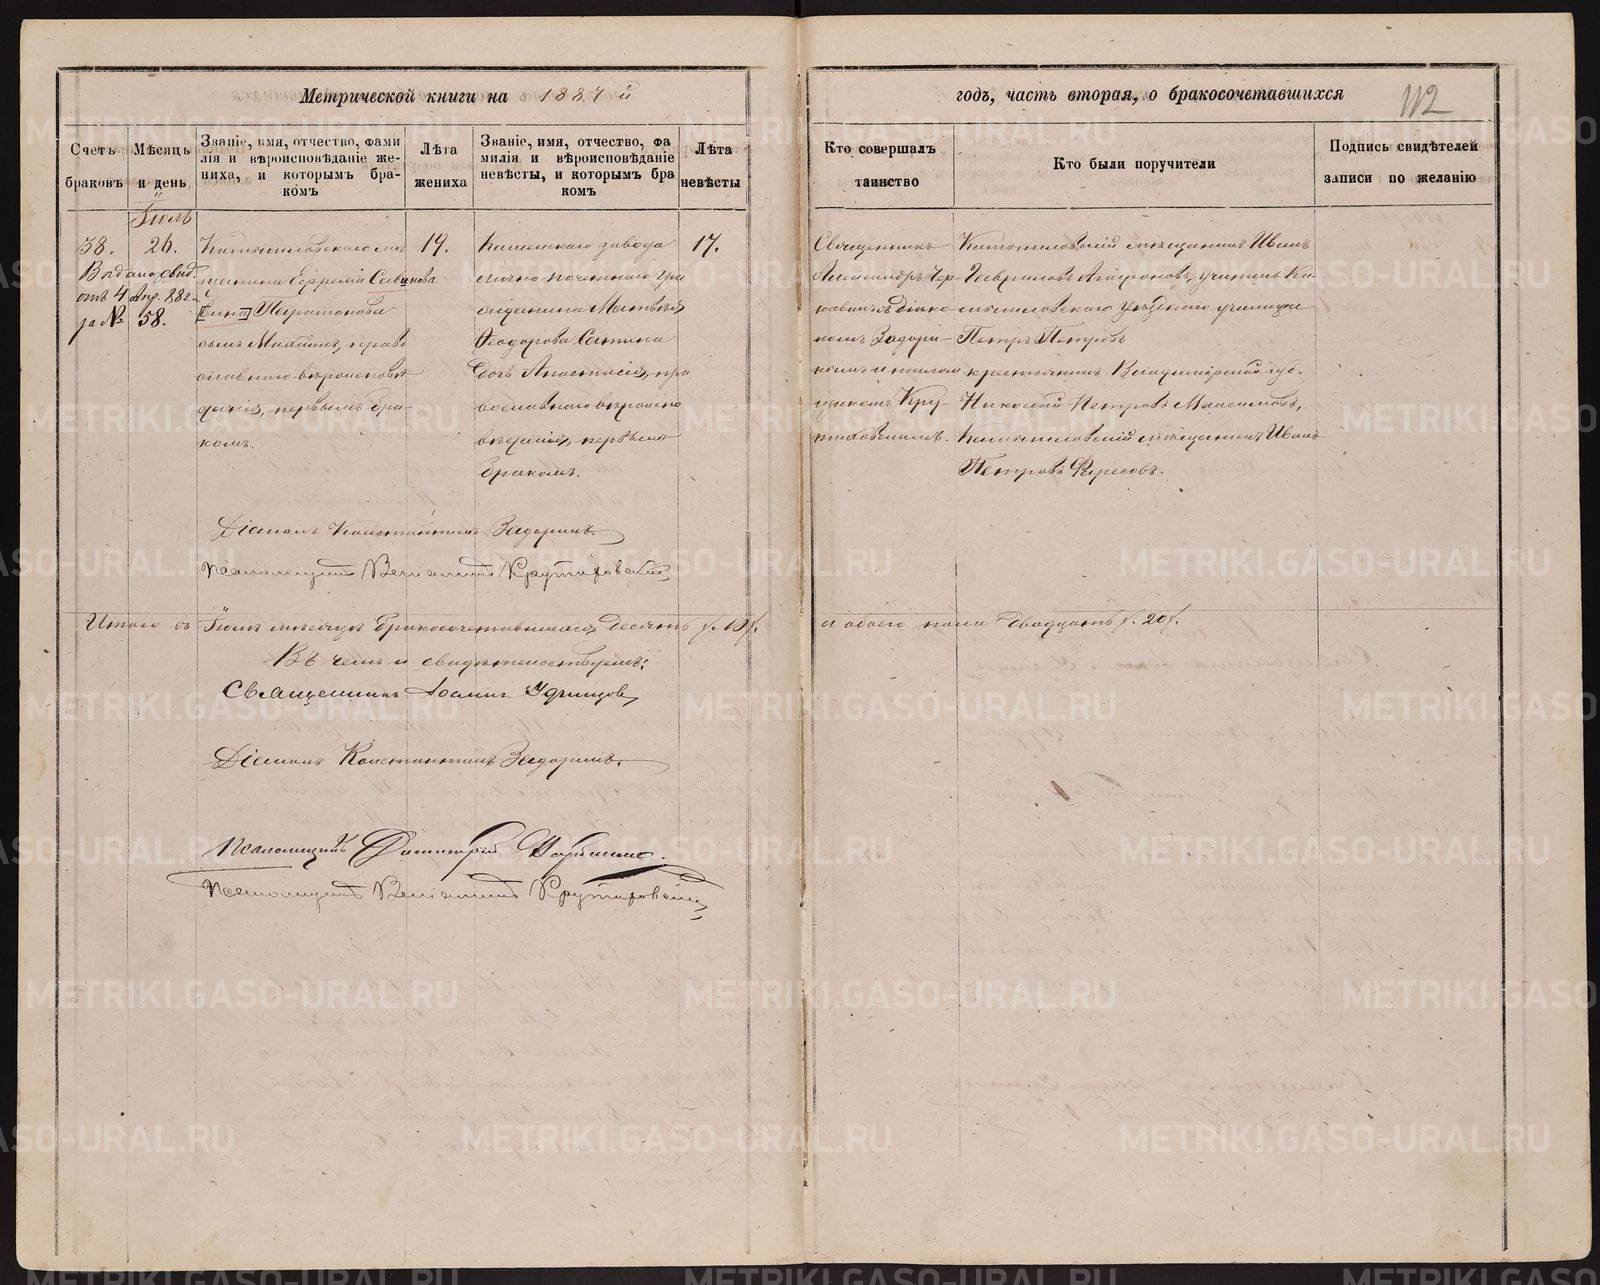 Метрической книги на 1887 й
годъ, часть вторая, о бракосочетавшихся
112
Счетъ браковъ
Мѣсяцъ и день
Званіе, имя, отчество, фами
лія и вѣроисповѣданіе же-
ниха, и которымъ бра-
комъ
Лѣта жениха
Званіе, имя, отчество, фа
милія и вѣроисповѣданіе
невѣсты, и которымъ бра
комъ
Лѣта невѣсты
Кто совершалъ
таинство
Кто были поручители
Подпись свидѣтелей
записи по желанію
Іюль
38.
26.
Выдано свид.
отъ 4 Апр. 88 г.
за № 58.
Камышловскаго мѣ
щанина Ефрема Саввинова
Парамонова
сынъ Михаилъ, право
славнаго вѣроисповѣ
данія, первымъ бра-
комъ.
19.
Каменскаго завода
лично почетнаго гра
жданина Матвѣя
Ѳеодорова
дочь Анастасія, пра
вославнаго вѣроиспо
вѣданія, первымъ
бракомъ.
17.
Священникъ
Александръ
діако-
номъ Задори-
нымъ и псалом
щикомъ Кру-
Камышловскій мѣщанинъ Иванъ
Гавриловъ Агафоновъ, учитель Ка-
мышловскаго уѣзднаго училища
Петръ Петровъ
крестьянинъ Владимірской губ.
Николай Петровъ Максимовъ,
Камышловскій мѣщанинъ Иванъ
Петровъ
Діаконъ Константинъ Задоринъ.
Псаломщикъ Веніаминъ
Итого въ Іюлѣ мѣсяцѣ бракосочетавшихся десять /. 10 /.
а обоего пола двадцать /. 20 /.
Въ чемъ и свидѣтельствуемъ:
Священникъ Іоаннъ Удинцовъ
Діаконъ Константинъ Задоринъ.
Псаломщикъ Димитрій
Псаломщикъ Веніаминъ
METRIKI.GASO-URAL.RU